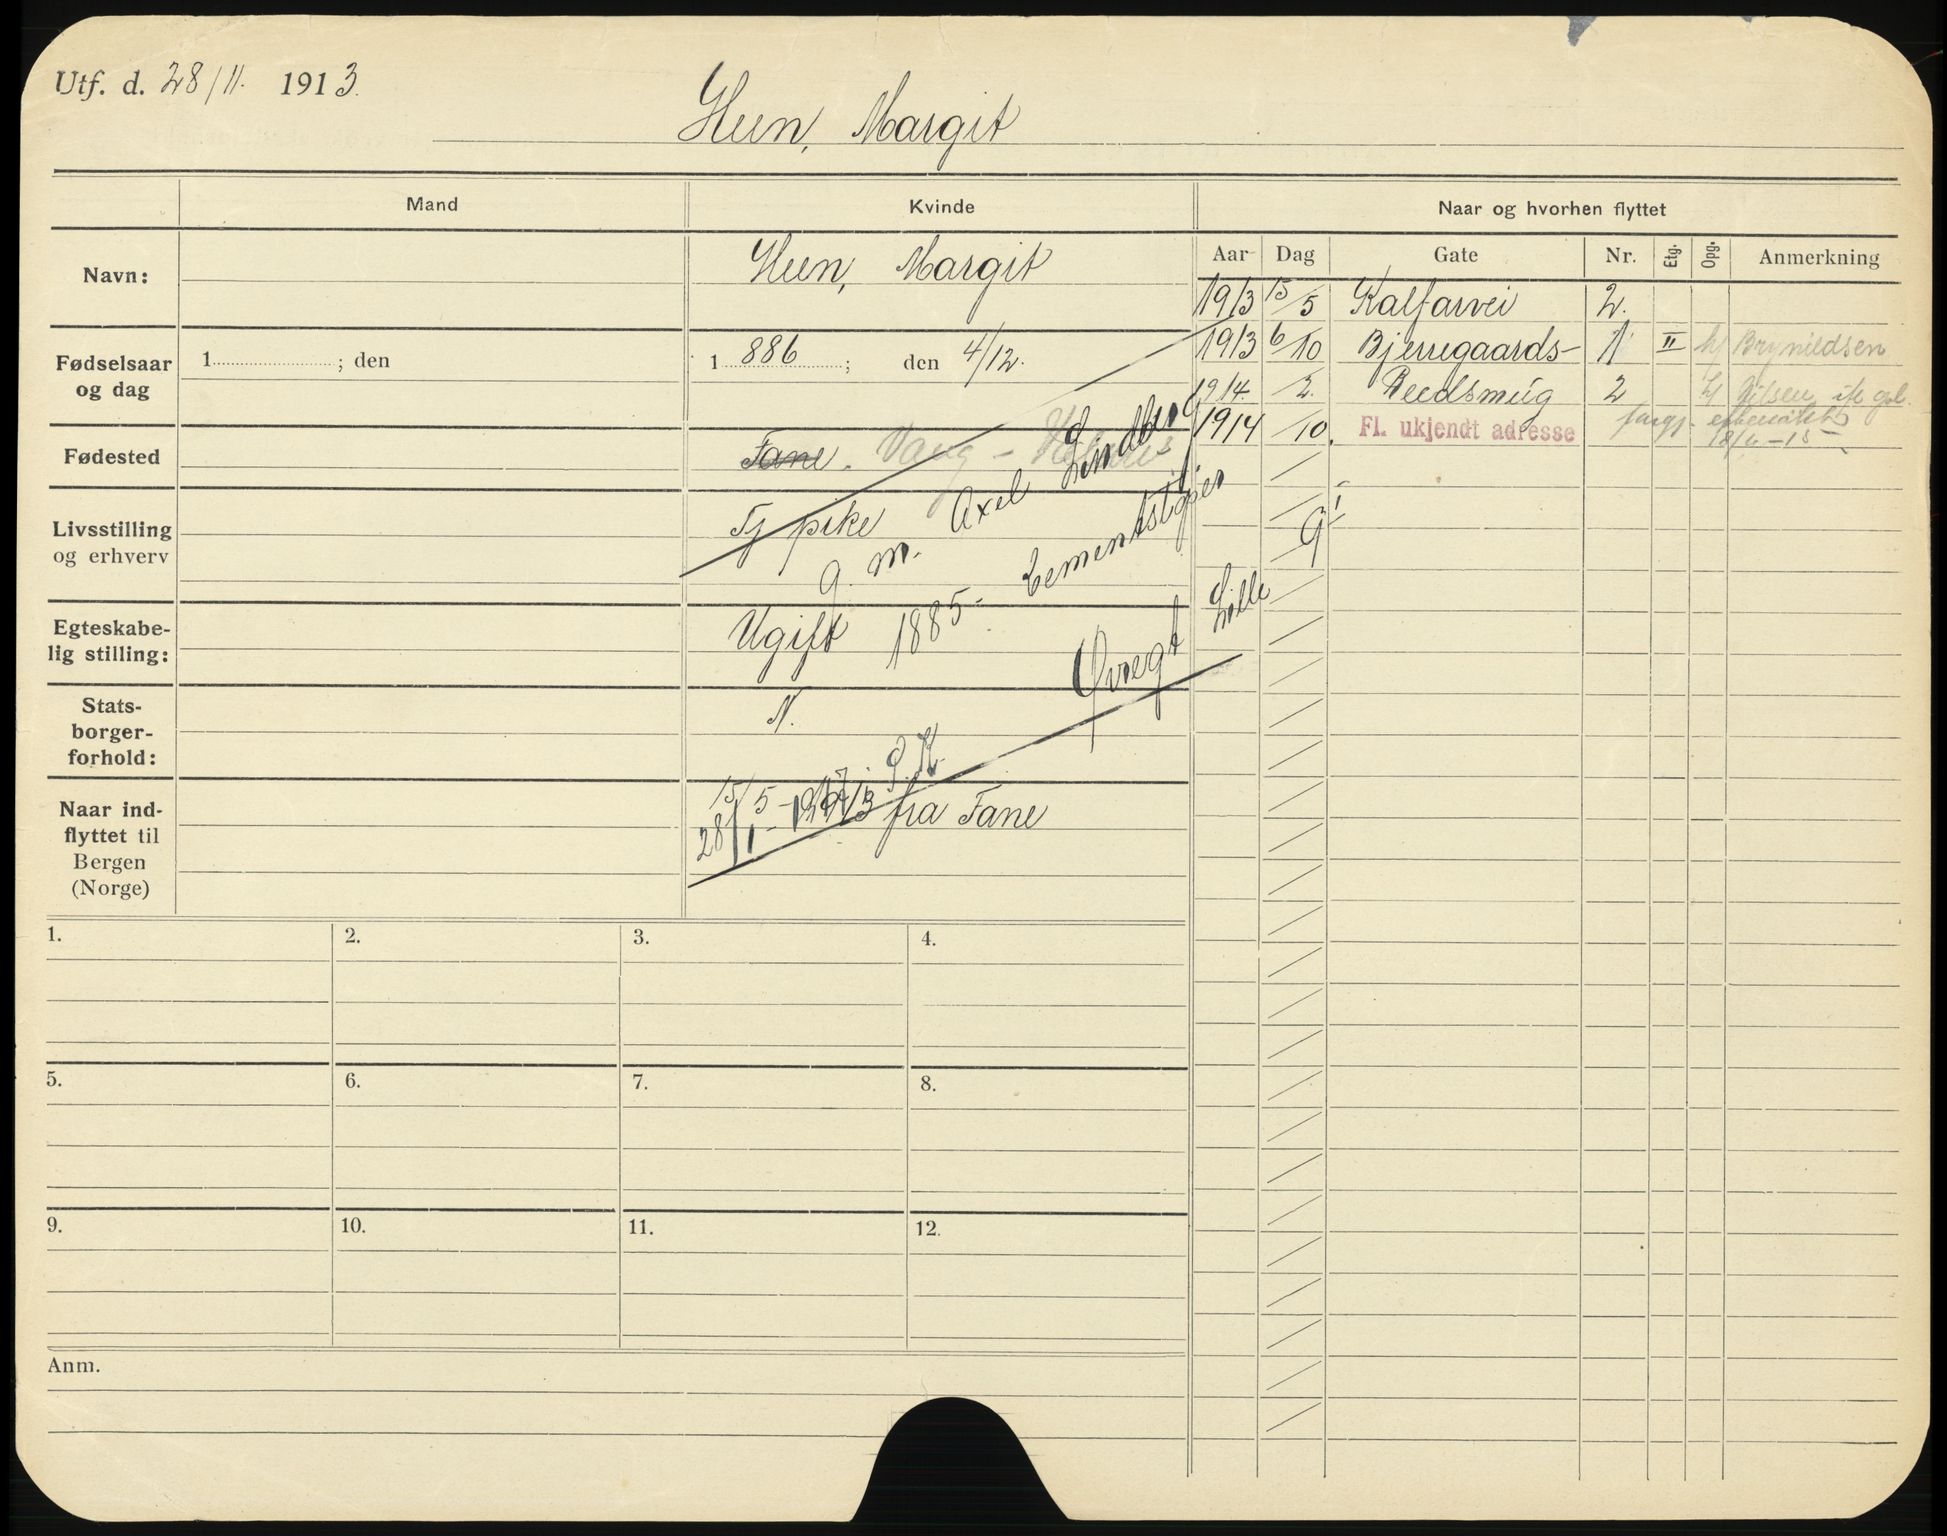 Utf. d. 28/11. 1913.
Hun, Margit
Mand
Kvinde
Naar og hvorhen flyttet
Navn:
Hun, Margit
Aar Dag Gate Nr. Etg. Opg. Anmerkning
1913 15/5 Kalfarvei 2.
1913 6/10 Bjerregaards- 1 II h/ Brynildsen
1914. /2. Reedsmug 2 h/ Nilsen
1914 /10. Fl. ukjendt adresse
18/6-15
Fødselsaar og dag
1 ; den
1 886 ; den 4/12.
Fødested
Fane. Vang -
Livsstilling og erhverv
Tj pike
g. m. Axel Lindberg
Egteskabe-
lig stilling:
Ugift
1885- Cementstøper
Øvregt Lille 9
Stats-
borger-
forhold:
N.
Naar ind-
flyttet til
Bergen
(Norge)
15/5 - 1913 fra Fane
28/1-1917. S.K.
1. 2. 3. 4.
5. 6. 7. 8.
9. 10. 11. 12.
Anm.